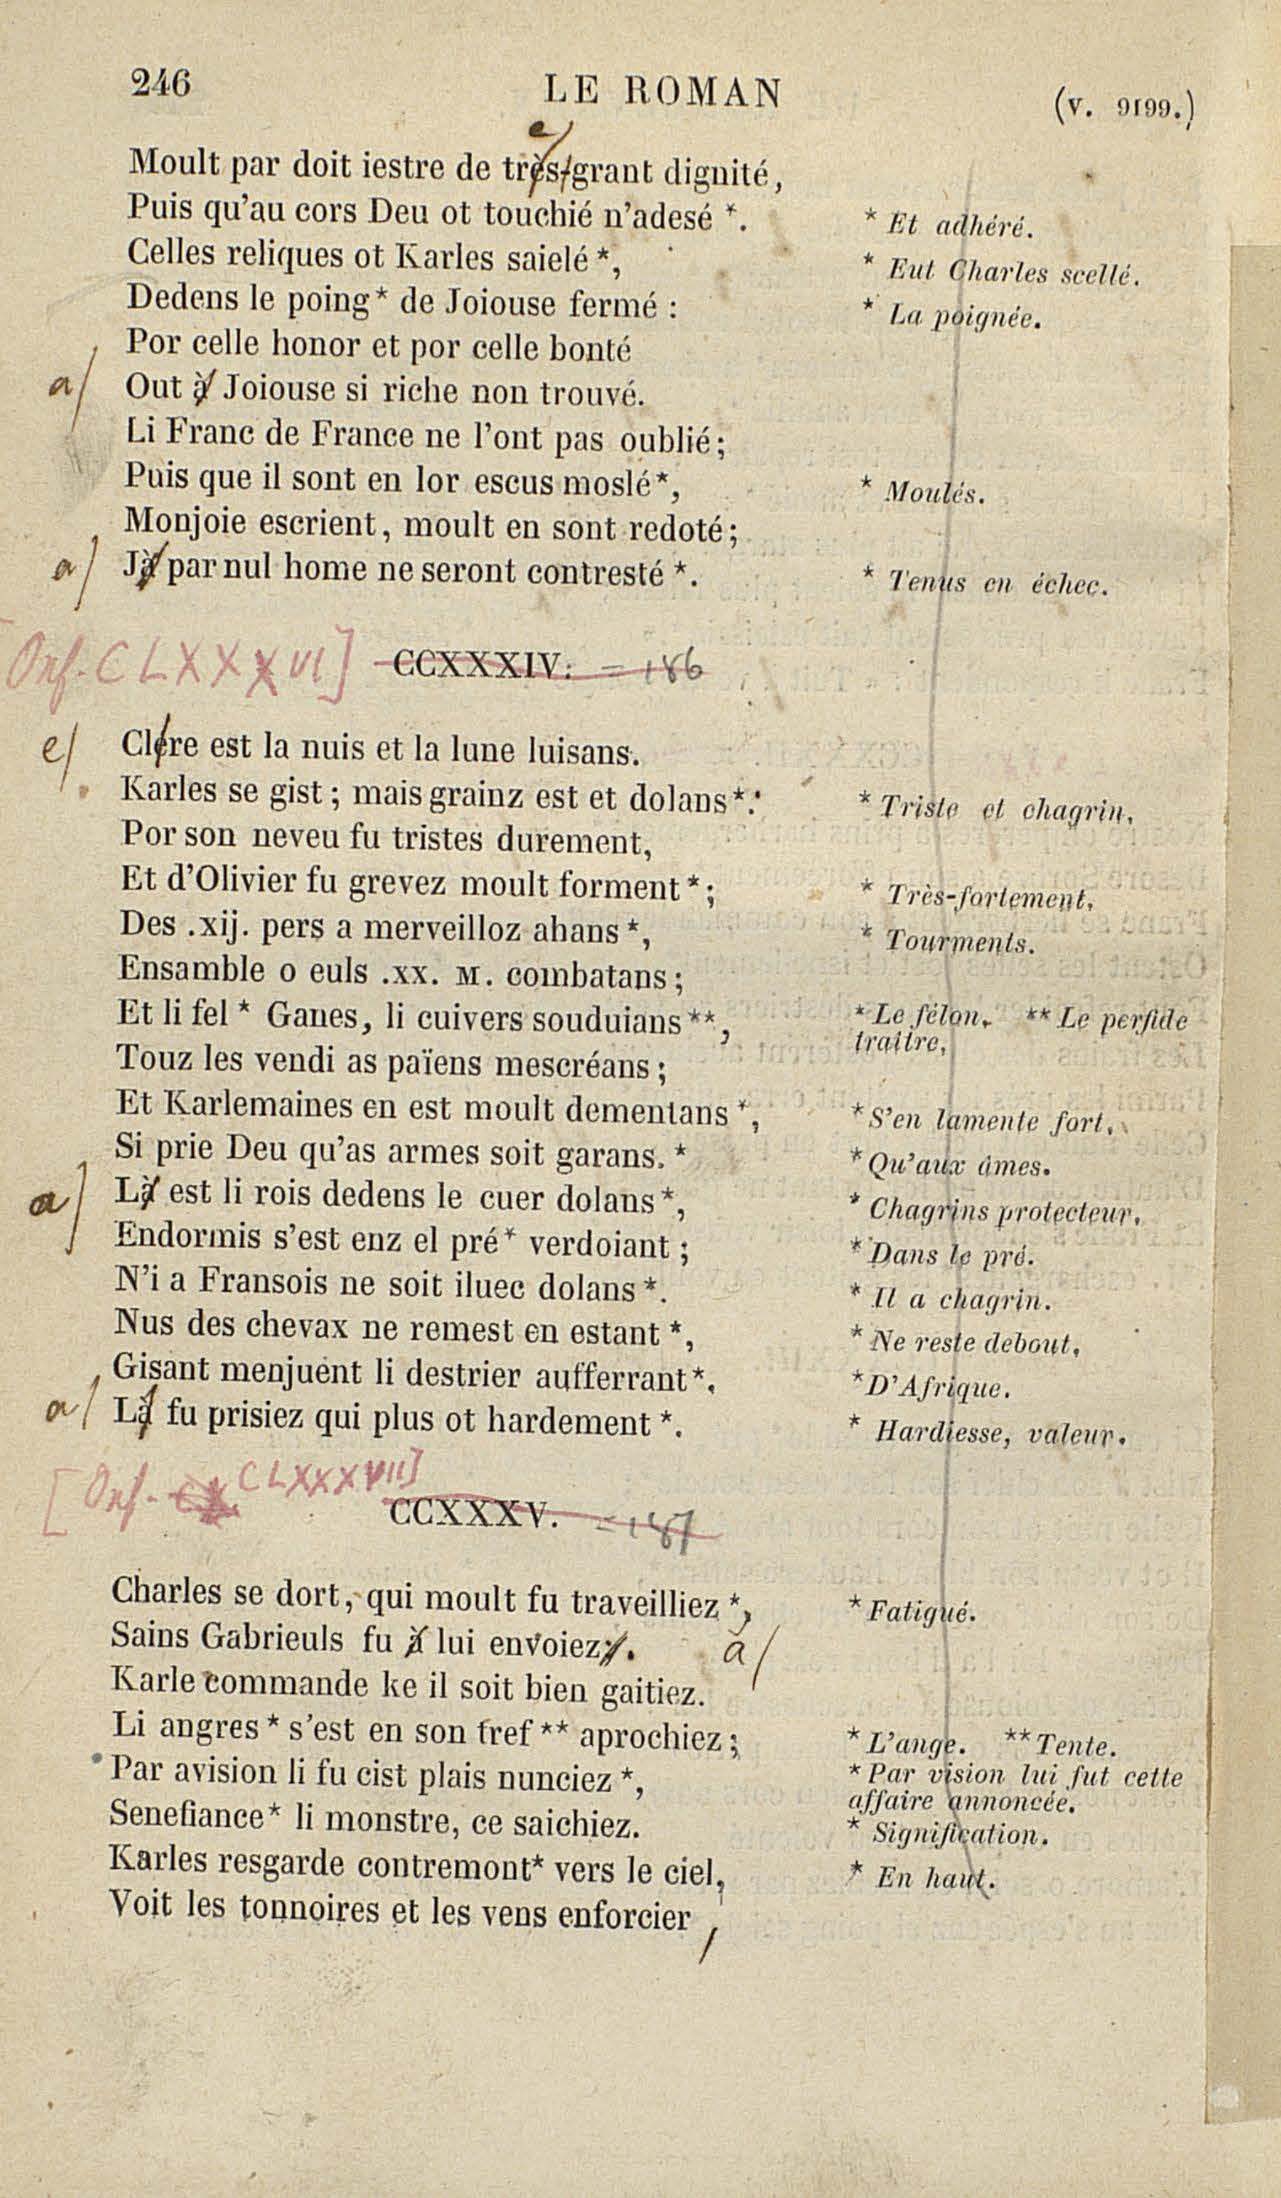 246 LE ROMAN (v. 9199.)
e/
Moult par doit iestre de très-grant dignité,
Puis qu'au cors Deu ot touchié n'adesé *. * Et adhéré.
Celles reliques ot Karles saielé *, * Eut Charles scellé.
Dedens le poing * de Joiouse fermé : * La poignée.
Por celle honor et por celle bonté
a/ Out à Joiouse si riche non trouvé.
Li Franc de France ne l'ont pas oublié;
Puis que il sont en lor escus moslé *, * Moulés.
Monjoie escrient, moult en sont redoté;
a/ Jà par nul home ne seront contresté *. * Tenus en échec.
Onf. CLXXXVI] CCXXXIV. = 186
e/ Clère est la nuis et la lune luisans.
Karles se gist; mais grainz est et dolans *. * Triste et chagrin.
Por son neveu fu tristes durement,
Et d'Olivier fu grevez moult forment *; * Très-fortement.
Des .xij. pers a merveilloz ahans *, * Tourments.
Ensamble o euls .XX. M. combatans;
Et li fel * Ganes, li cuivers souduians **, * Le félon. ** Le perfide
traître.
Touz les vendi as païens mescréans;
Et Karlemaines en est moult dementans *, * S'en lamente fort.
Si prie Deu qu'as armes soit garans. * * Qu'aux âmes.
a/ Là est li rois dedens le cuer dolans *, * Chagrins protecteur.
Endormis s'est enz el pré * verdoiant; * Dans le pré.
N'i a Fransois ne soit iluec dolans *. * Il a chagrin.
Nus des chevax ne remest en estant *, * Ne reste debout.
Gisant menjuent li destrier aufferrant *. * D'Afrique.
a/ Là fu prisiez qui plus ot hardement *. * Hardiesse, valeur.
[Onf. CLXXXVII]
CCXXXV. = 187
Charles se dort, qui moult fu traveilliez *, * Fatigué.
Sains Gabrieuls fu à lui envoiez. a/
Karle commande ke il soit bien gaitiez.
Li angres * s'est en son tref ** aprochiez; * L'ange. ** Tente.
Par avision li fu cist plais nunciez *, * Par vision lui fut cette
affaire annoncée.
Senefiance * li monstre, ce saichiez. * Signification.
Karles resgarde contremont * vers le ciel, * En haut.
Voit les tonnoires et les vens enforcier,